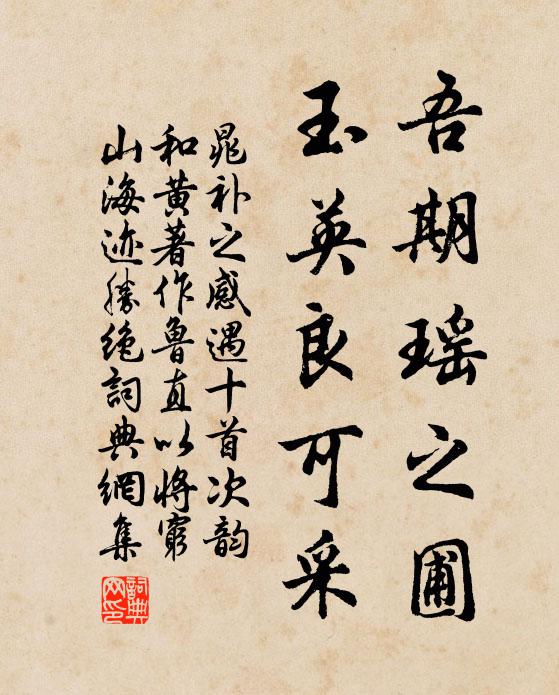 吾期瑶之圃
玉英良可采
晁补之感遇十首次韵
和黄著作鲁直以将穷
山海迹勝绝詞典網集
詞典网印